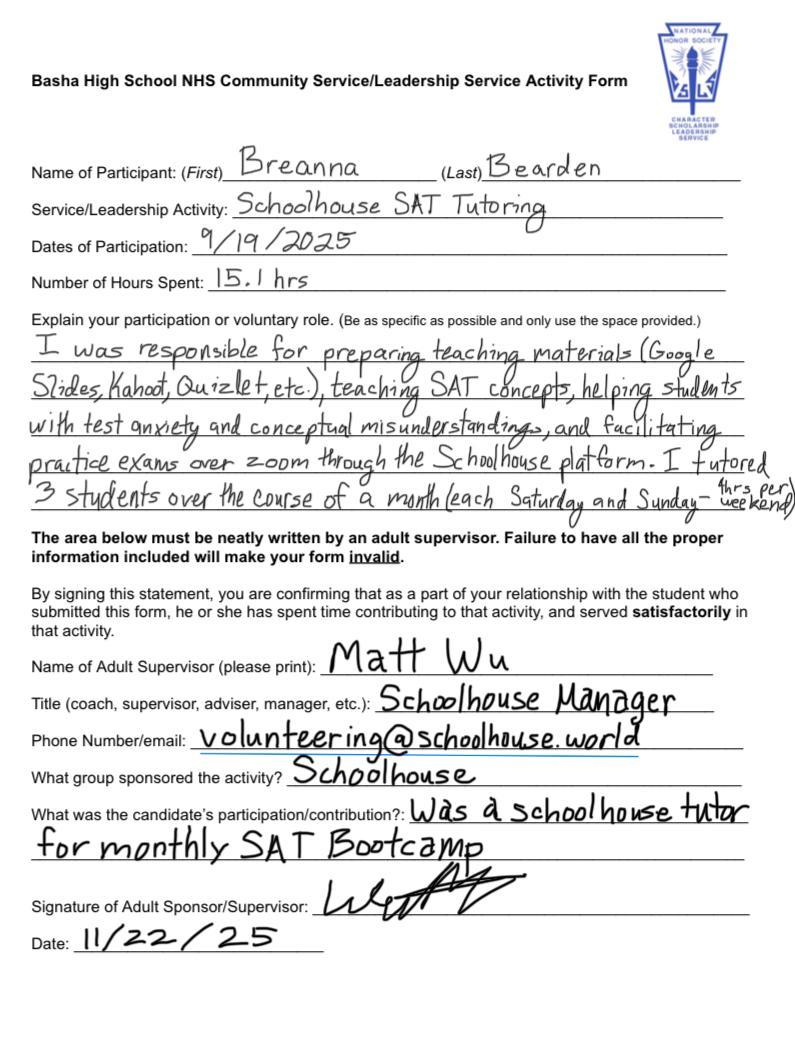 NATIONAL
HONOR SOCIETY
Basha High School NHS Community Service/Leadership Service Activity Form
S L S
CHARACTER
SCHOLARSHIP
LEADERSHIP
SERVICE
Name of Participant: (First) Breanna (Last) Bearden
Service/Leadership Activity: Schoolhouse SAT Tutoring
Dates of Participation: 9/19/2025
Number of Hours Spent: 15.1 hrs
Explain your participation or voluntary role. (Be as specific as possible and only use the space provided.)
I was responsible for preparing teaching materials (Google
Slides, Kahoot, Quizlet, etc.), teaching SAT concepts, helping students
with test anxiety and conceptual misunderstandings, and facilitating
practice exams over zoom through the Schoolhouse platform. I tutored
3 students over the course of a month (each Saturday and Sunday- 4hrs per weekend)
The area below must be neatly written by an adult supervisor. Failure to have all the proper
information included will make your form invalid.
By signing this statement, you are confirming that as a part of your relationship with the student who
submitted this form, he or she has spent time contributing to that activity, and served satisfactorily in
that activity.
Name of Adult Supervisor (please print): Matt Wu
Title (coach, supervisor, adviser, manager, etc.): Schoolhouse Manager
Phone Number/email: volunteering@schoolhouse.world
What group sponsored the activity? Schoolhouse
What was the candidate's participation/contribution?: Was a schoolhouse tutor
for monthly SAT Bootcamp
Signature of Adult Sponsor/Supervisor:
Date: 11/22/25